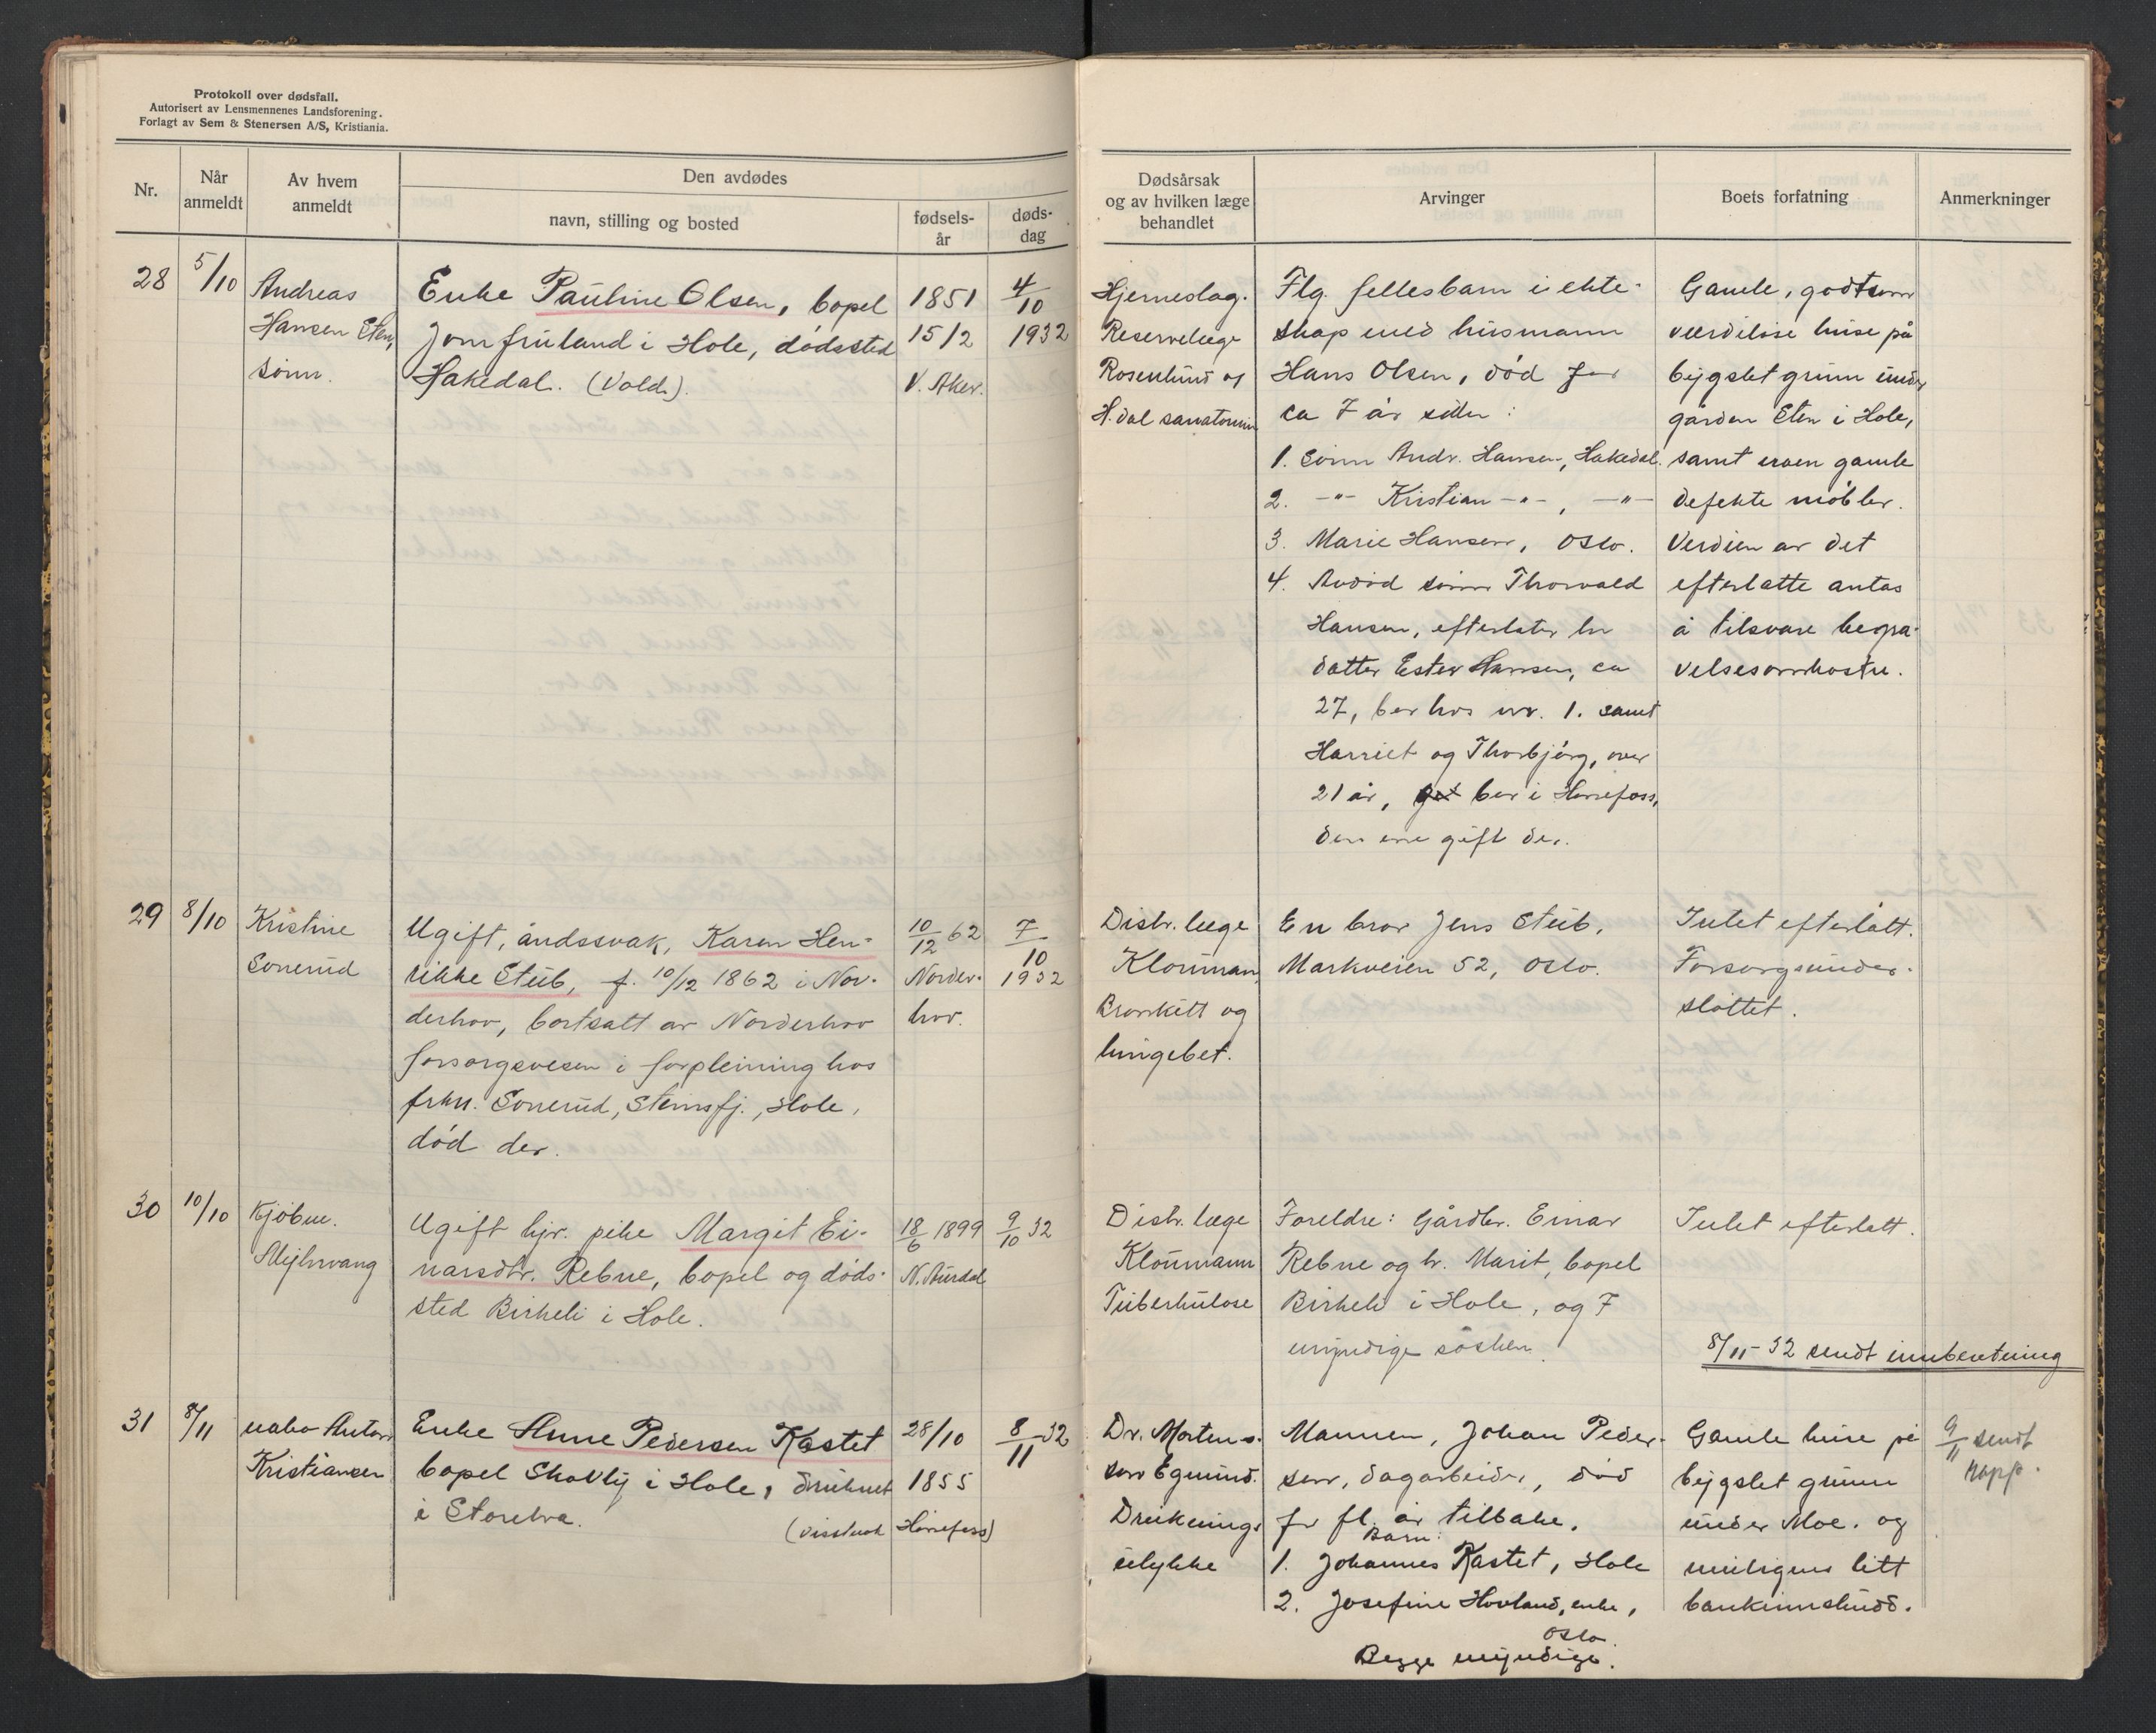 Protokoll over dødsfall.
Autorisert av Lensmennenes Landsforening.
Forlagt av Sem & Stenersen A/S, Kristiania.
Nr.
Når anmeldt
Av hvem anmeldt
Den avdødes
navn, stilling og bosted
fødsels-
år
døds-
dag
Dødsårsak
og av hvilken læge
behandlet
Arvinger
Boets forfatning
Anmerkninger
28
5/10
Andreas
Hansen Eten,
sønn.
Enke Pauline Olsen, bopel
Jomfruland i Hole, dødssted
Hakedal. (Vold.).
1851
15/2
V. Aker.
4/10
1932
Hjerneslag.
Reservelæge
Rosenlund og
H.dal sanatorium
Flg. fellesbarn i ekte-
skap med husmann
Hans Olsen, død for
ca 7 år siden:
1. Sønn Andr. Hansen, Hakedal.
2. -"- Kristian -"-, -"-
3. Marie Hansen, Oslo.
4. Avdød sønn Thorvald
Hansen, efterlater en
datter Ester Hansen, ca
27, bor hos nr. 1. samt
Harriet og Thorbjørg, over
21 år, bor i Hønefoss,
den ene gift der.
Gamle, godtsom
værdiløse huse på
bygslet grunn under
gården Eten i Hole,
samt noen gamle
defekte møbler.
Verdien av det
efterlatte antas
å tilsvare begra-
velsesomkostn.
29
8/10
Kristine
Sonerud
Ugift, åndssvak, Karen Hen-
rikke Steib, f. 10/12 1862 i Nor-
derhov, bortsatt av Norderhov
forsorgsvesen i forpleining hos
frkn. Sonerud, Steinsfj., Hole,
død der.
10/12 62
Norder-
hov.
7/10
1932
Distr. læge
Kloumann,
Bronkitt og
lungebet.
En bror Jens Steib,
Markveien 52, Oslo.
Intet efterlatt.
Forsorgsunder-
støttet.
30
10/10
Kjøbm.
Myhrvang
Ugift hjv. pike Margit Ei-
narsdtr. Rebne, bopel og døds-
sted Birkeli i Hole.
18/6 1899
N. Aurdal
9/10 32
Distr. læge
Kloumann
Tuberkulose
Foreldre: Gårdbr. Einar
Rebne og h. Marit, bopel
Birkeli i Hole, og 7
myndige søsken.
Intet efterlatt.
8/11-32 sendt innberetning
31
8/11
nabo Anton
Kristiansen
Enke Anne Pedersen Kastet
bopel Skovly i Hole, druknet
i Storelva.
(visstnok Hønefoss)
28/10
1855
8/11 32
Dr. Mortens-
son Egnund.
Druknings-
ulykke
Mannen, Johan Peder-
sen, dagarbeider, død
for fl. år tilbake.
Barn:
1. Johannes Kastet, Hole
2. Josefine Hovland, enke,
Oslo.
Begge myndige.
Gamle huse på
bygslet grunn
under Moe. og
muligens litt
bankinnskudd.
9/11 sendt
rapp.